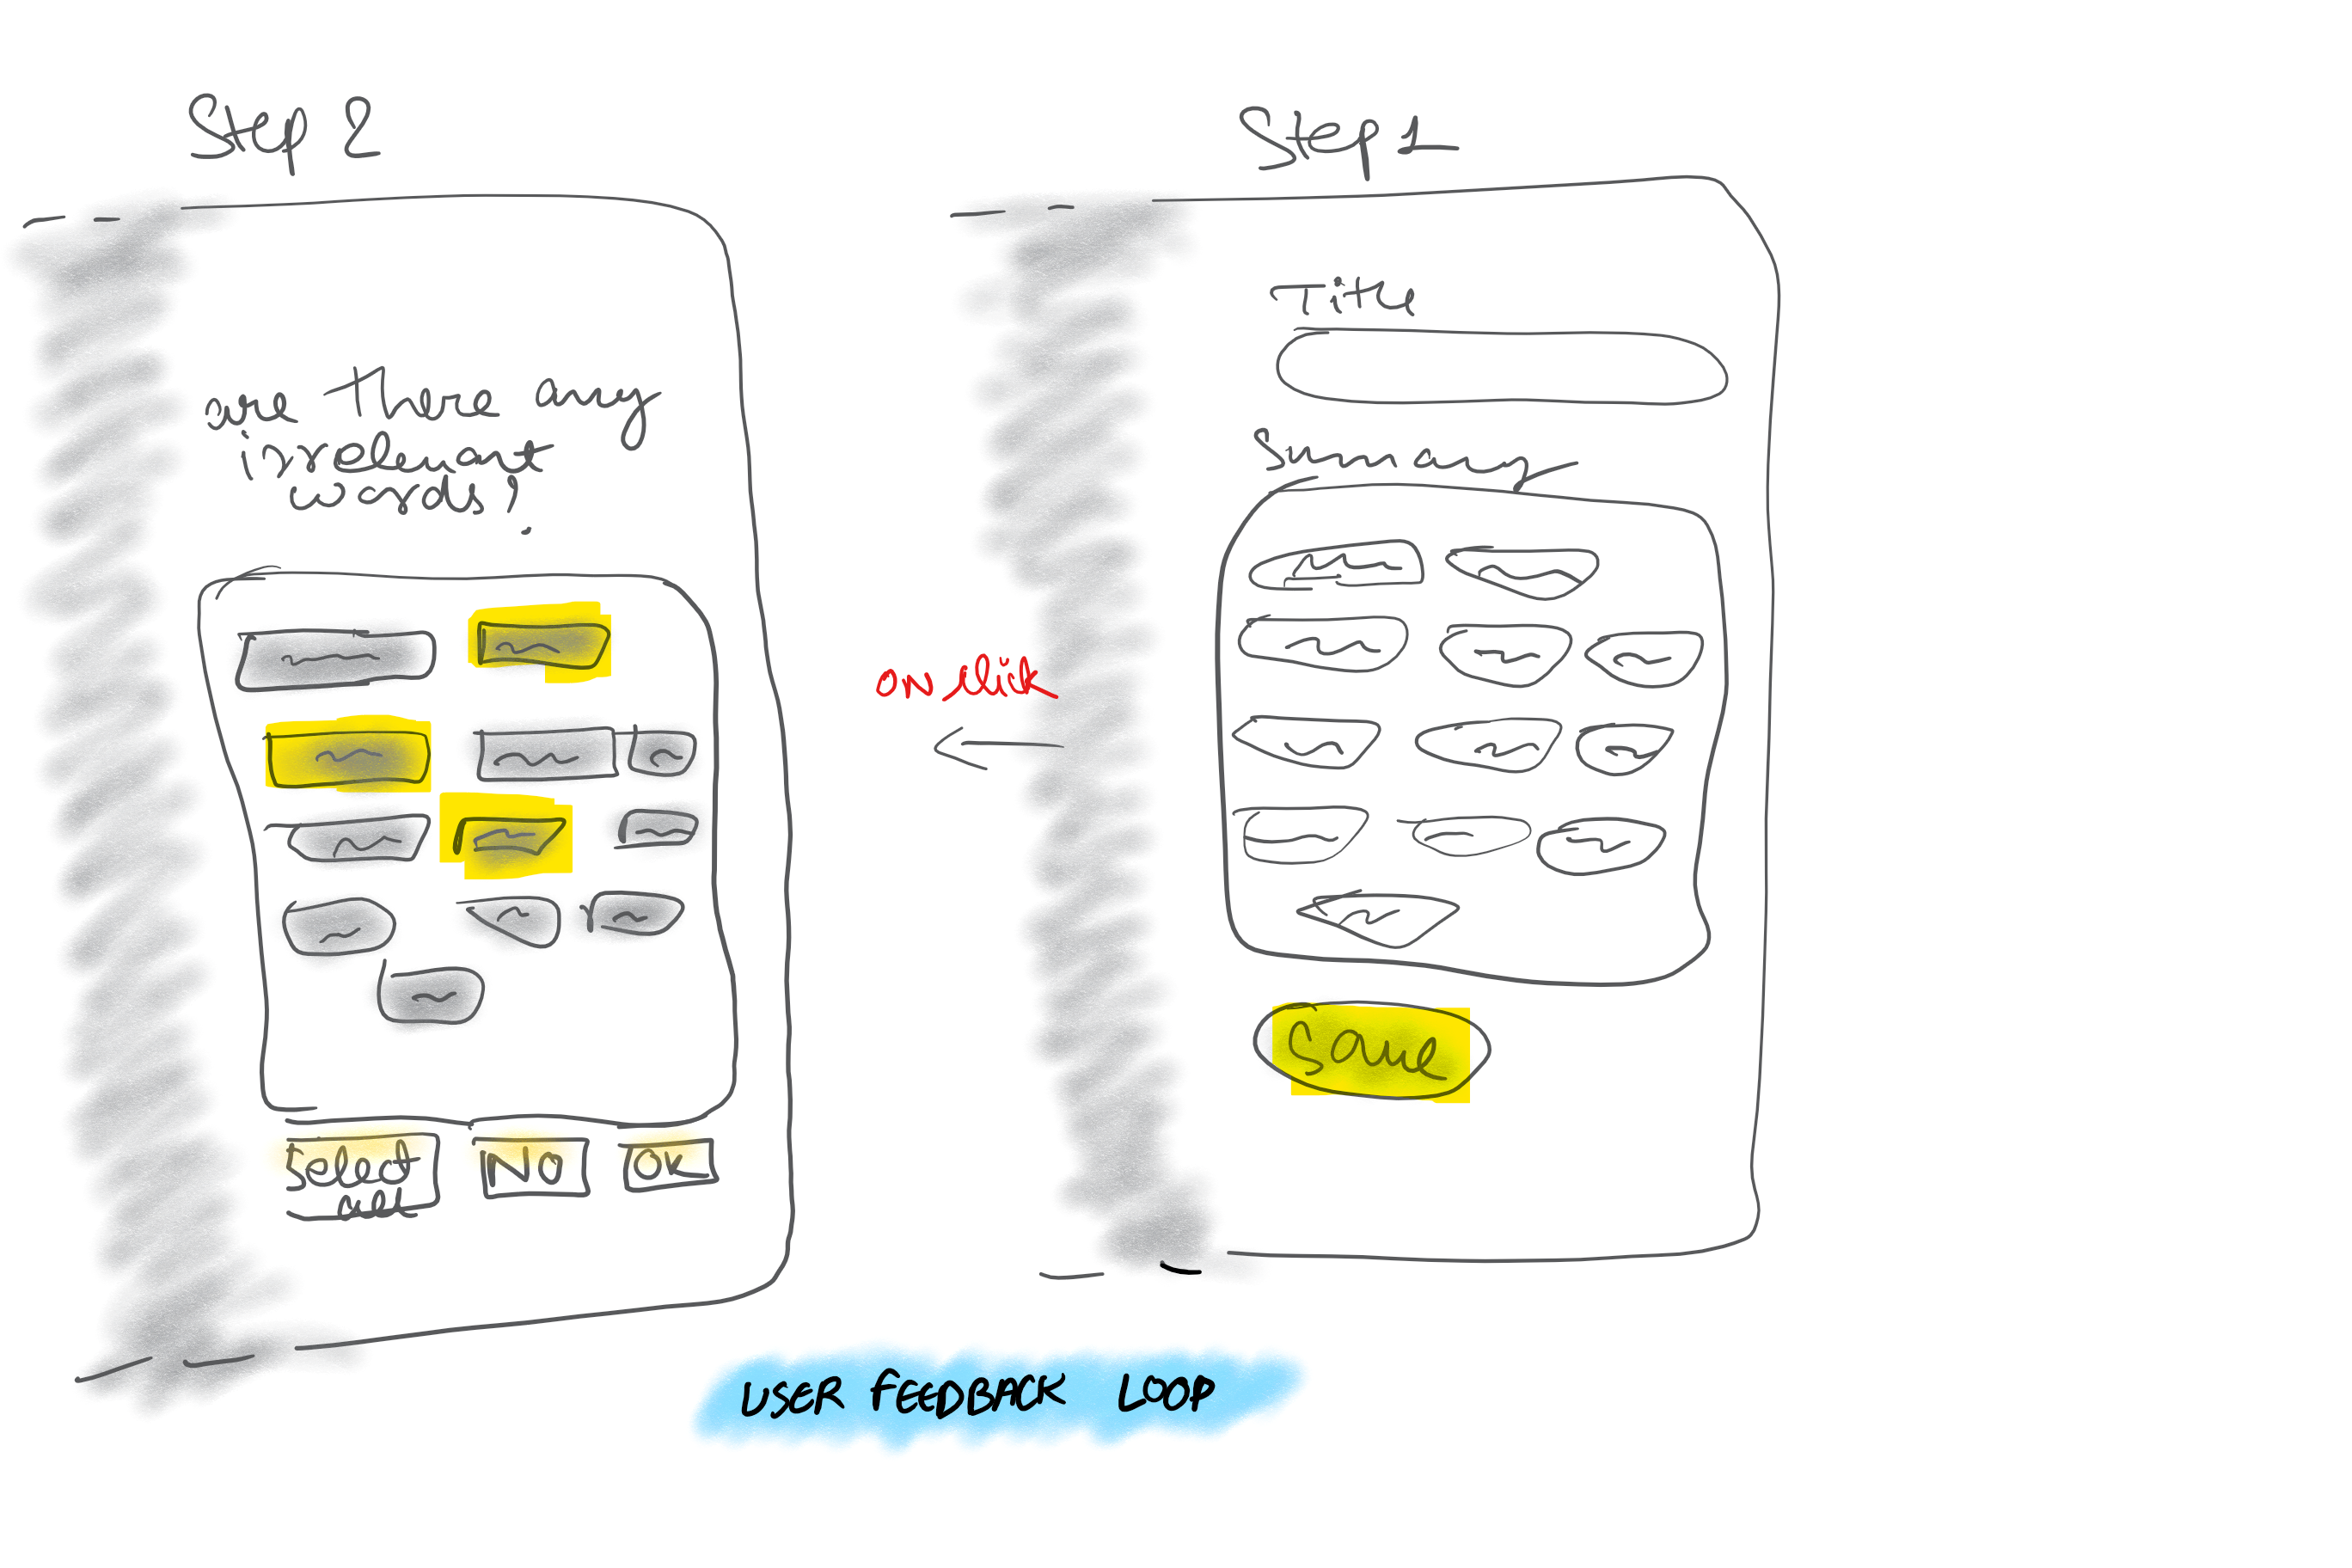 Step 2
are there any
irrelevant
words?
Select
all
No
OK
on click
Step 1
Title
Summary
Save
USER FEEDBACK LOOP